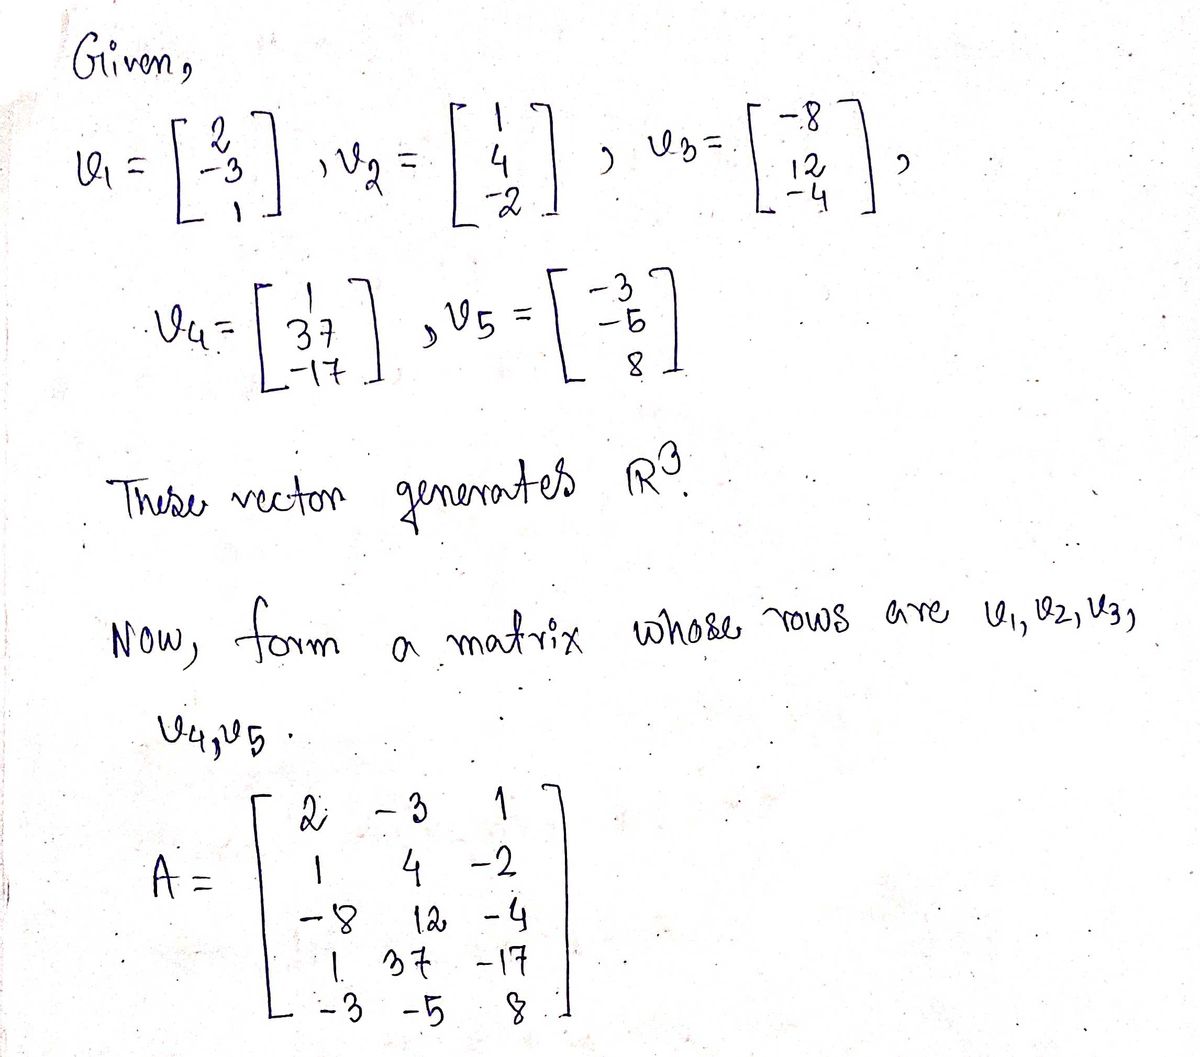 Given,
v₁ = [2 -3 1], v₂ = [1 4 -2], v₃ = [-8 12 -4],
v₄ = [1 37 -17], v₅ = [-3 -5 8]
These vector generates ℝ³.
Now, form a matrix whose rows are v₁, v₂, v₃,
v₄, v₅.
A = [
2 -3 1
1 4 -2
-8 12 -4
1 37 -17
-3 -5 8
]